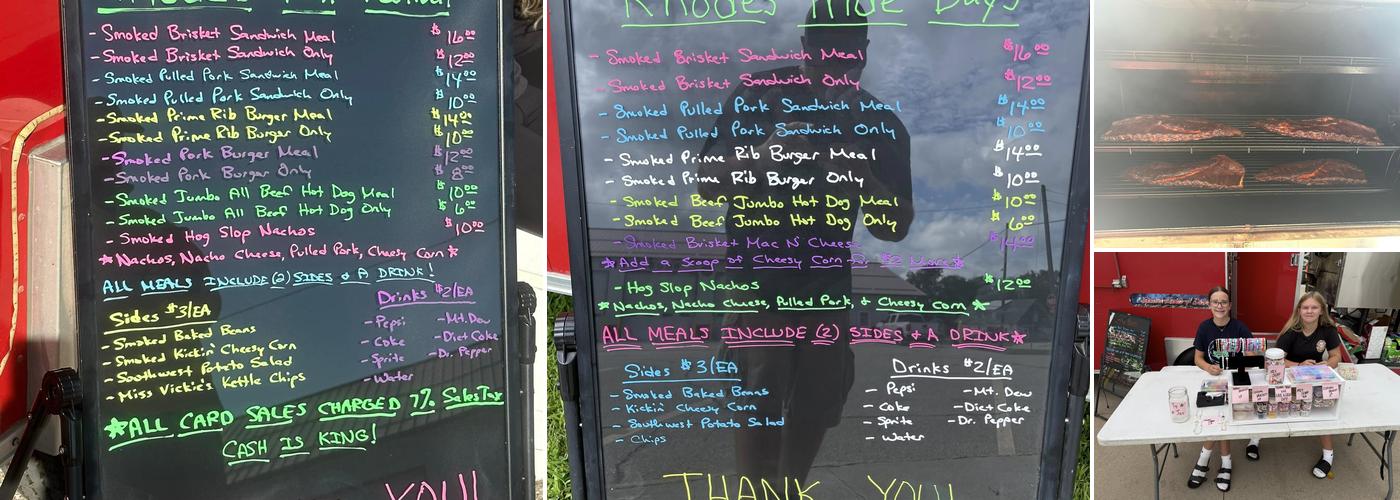 - Smoked Brisket Sandwich Meal $16.00
- Smoked Brisket Sandwich Only $12.00
- Smoked Pulled Pork Sandwich Meal $14.00
- Smoked Pulled Pork Sandwich Only $10.00
- Smoked Prime Rib Burger Meal $14.00
- Smoked Prime Rib Burger Only $10.00
- Smoked Pork Burger Meal $12.00
- Smoked Pork Burger Only $8.00
- Smoked Jumbo All Beef Hot Dog Meal $10.00
- Smoked Jumbo All Beef Hot Dog Only $6.00
- Smoked Hog Slop Nachos $10.00
*Nachos, Nacho Cheese, Pulled Pork, Cheesy Corn*
ALL MEALS INCLUDE (2) SIDES & A DRINK!
Sides $3/EA
- Smoked Baked Beans
- Smoked Kickin' Cheesy Corn
- Southwest Potato Salad
- Miss Vickie's Kettle Chips
Drinks $2/EA
- Pepsi - Mt. Dew
- Coke - Diet Coke
- Sprite - Dr. Pepper
- Water
*ALL CARD SALES CHARGED 7% Sales Tax
CASH IS KING!
YOU!
Rhodes Days
- Smoked Brisket Sandwich Meal $16.00
- Smoked Brisket Sandwich Only $12.00
- Smoked Pulled Pork Sandwich Meal $14.00
- Smoked Pulled Pork Sandwich Only $10.00
- Smoked Prime Rib Burger Meal $14.00
- Smoked Prime Rib Burger Only $10.00
- Smoked Beef Jumbo Hot Dog Meal $10.00
- Smoked Beef Jumbo Hot Dog Only $6.00
- Smoked Brisket Mac N' Cheese $14.00
*Add a Scoop of Cheesy Corn $2 More*
- Hog Slop Nachos $12.00
*Nachos, Nacho Cheese, Pulled Pork, & Cheesy Corn*
ALL MEALS INCLUDE (2) SIDES & A DRINK*
Sides $3/EA
- Smoked Baked Beans
- Kickin' Cheesy Corn
- Southwest Potato Salad
- Chips
Drinks $2/EA
- Pepsi - Mt. Dew
- Coke - Diet Coke
- Sprite - Dr. Pepper
- Water
THANK YOU!